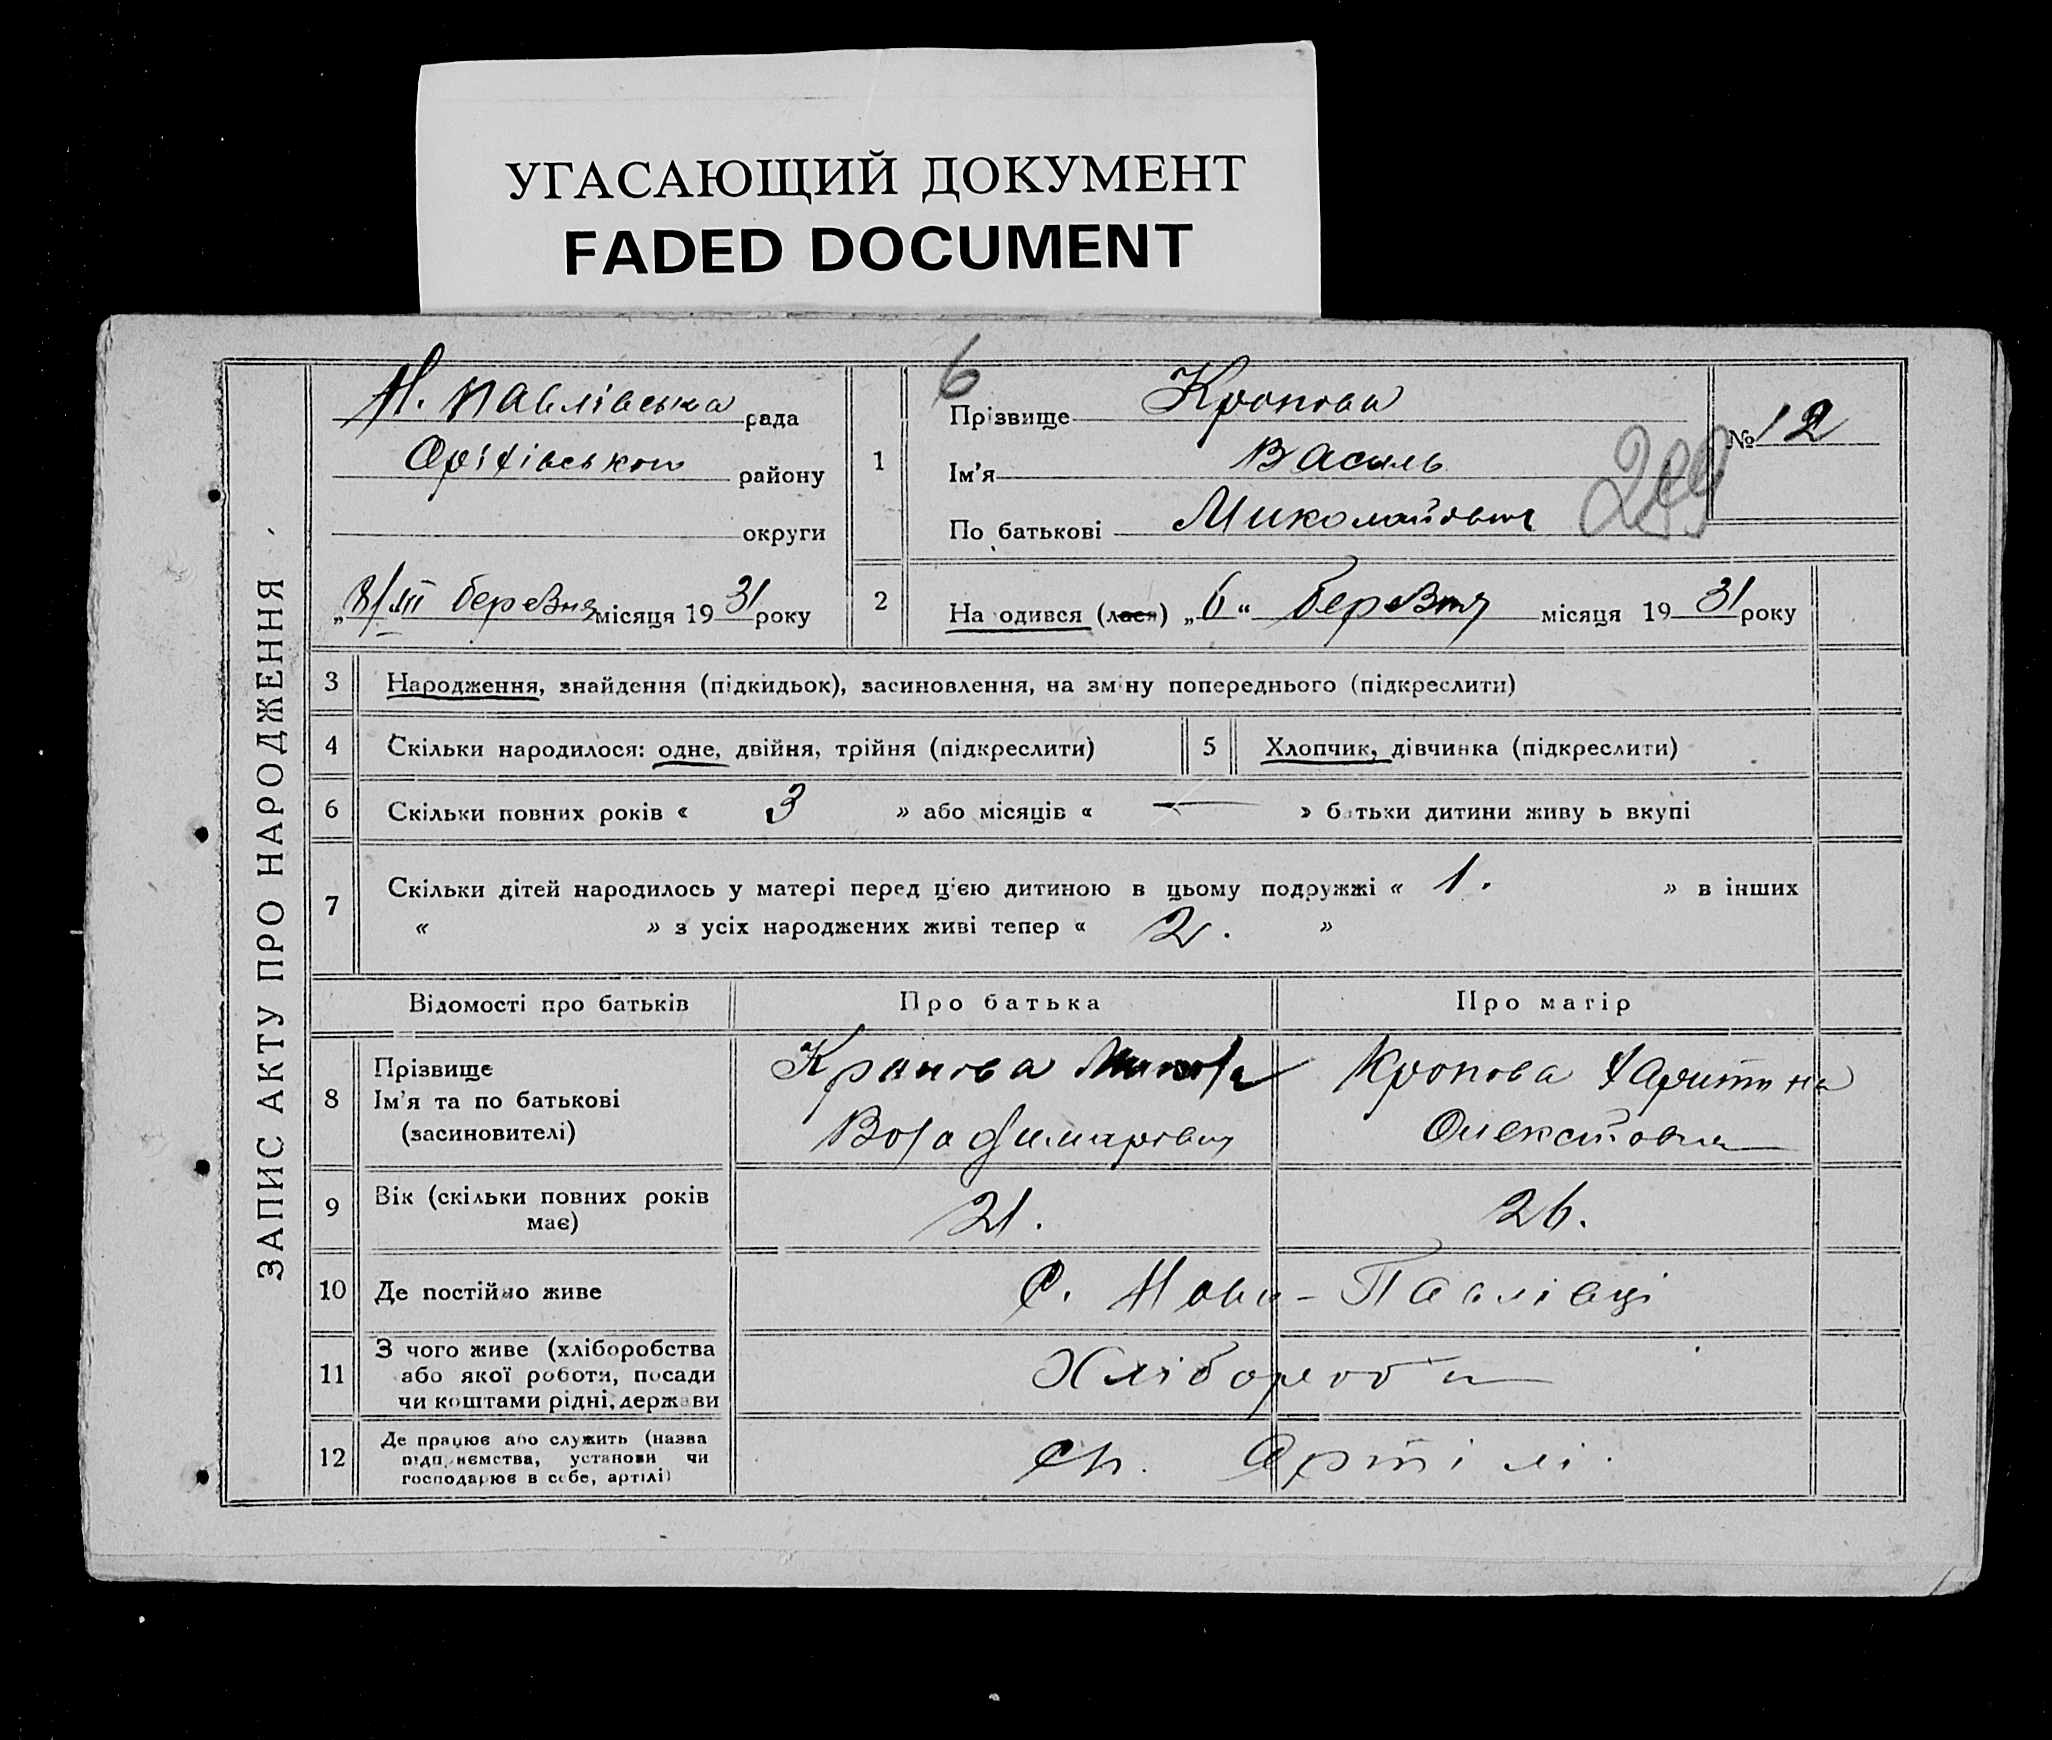 УГАСАЮЩИЙ ДОКУМЕНТ
FADED DOCUMENT
ЗАПИС АКТУ ПРО НАРОДЖЕННЯ
Н. Павлівська рада
Оріхівського району
округи
8/III березня місяця 1931 року
6
1
Прізвище Кропова
Ім'я Василь
По батькові Миколайович
№ 12
2
На одився (лася) „6“ березня місяця 1931 року
3 Народження, знайдення (підкидьок), засиновлення, на зміну попереднього (підкреслити)
4 Скільки народилося: одне, двійня, трійня (підкреслити)
5 Хлопчик, дівчинка (підкреслити)
6 Скільки повних років « 3 » або місяців « — » батьки дитини живу ь вкупі
7 Скільки дітей народилось у матері перед цією дитиною в цьому подружжі « 1. » в інших
« » з усіх народжених живі тепер « 2. »
Відомості про батьків Про батька Про матір
8 Прізвище
Ім'я та по батькові
(засиновителі)
Кропова Микола
Володимирович
Кропова Харитина
Олексіївна
9 Вік (скільки повних років
має)
21. 26.
10 Де постійно живе С. Ново-Павлівці
11 З чого живе (хліборобства
або якої роботи, посади
чи коштами рідні, держави
Хлібороби
12 Де працює або служить (назва
підприємства, установи чи
господарює в себе, артілі)
Артілі.